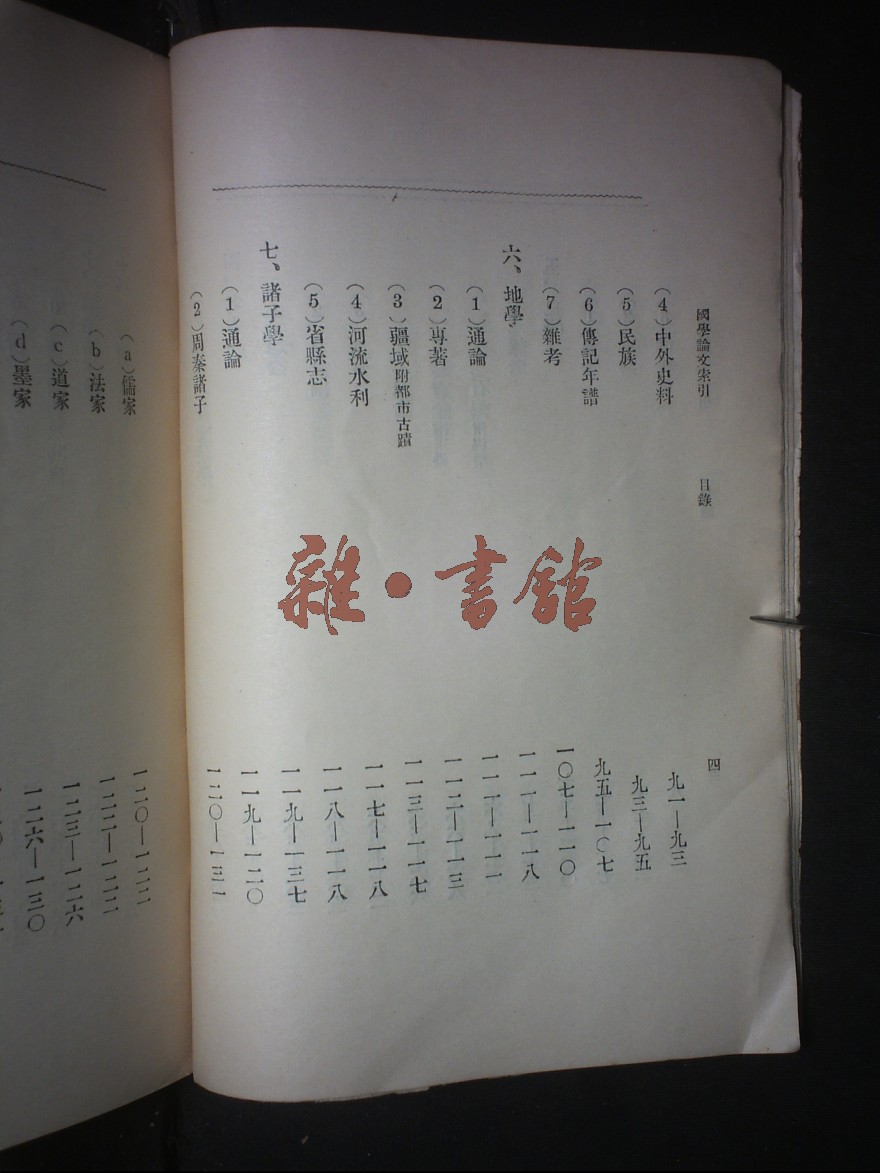 國學論文索引 目錄 四
（4）中外史料 九一—九三
（5）民族 九三—九五
（6）傳記年譜 九五—一〇七
（7）雜考 一〇七—一一〇
六、地學 一一一—一一八
（1）通論 一一一—一一一
（2）專著 一一二—一一三
（3）疆域附都市古蹟 一一三—一一七
（4）河流水利 一一七—一一八
（5）省縣志 一一八—一一八
七、諸子學 一一九—一三七
（1）通論 一一九—一二〇
（2）周秦諸子 一二〇—一三一
（a）儒家 一二〇—一二二
（b）法家 一二二—一二二
（c）道家 一二三—一二六
（d）墨家 一二六—一三〇
雜·書館